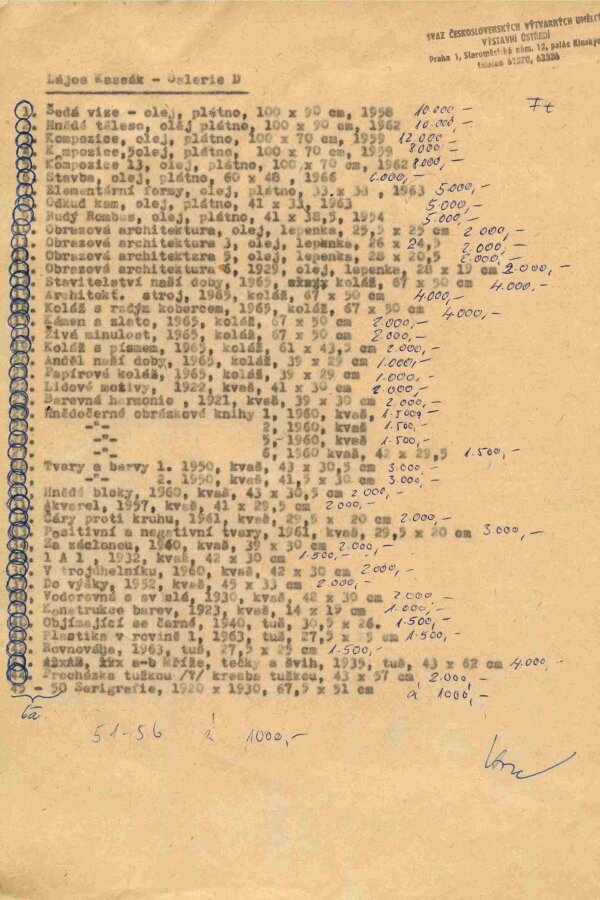 SVAZ ČESKOSLOVENSKÝCH VÝTVARNÝCH UMĚLCŮ
VÝSTAVNÍ ÚSTŘEDÍ
Praha 1, Staroměstské nám. 12, palác Kinských
telefon 61870, 63236
Lájos Kassák - Galerie D
Ft
1. Šedá vize - olej, plátno, 100 x 90 cm, 1958 10.000,-
Hnědé těleso, olej plátno, 100 x 90 cm, 1962 10.000,-
Kompozice, olej, plátno, 100 x 70 cm, 1959 12.000,-
Kompozice,5olej, plátno, 100 x 70 cm, 1959 8.000,-
Kompozice 13, olej, plátno, 100 x 70 cm, 1962 8.000,-
Stavba, olej, plátno, 60 x 48 , 1966 6.000,-
Elementární formy, olej, plátno, 33 x 33 , 1963 5.000,-
Odkud kam, olej, plátno, 41 x 33, 1963 5.000,-
Rudý Rombus, olej, plátno, 41 x 38,5, 1954 5.000,-
Obrazová architektura, olej, lepenka, 25,5 x 25 cm 2.000,-
Obrazová architektura 3, olej, lepenka, 26 x 24,5 2.000,-
Obrazová architektzra 5, olej, lepenka, 28 x 20,5 2.000,-
Obrazová architektura 6, 1929, olej, lepenka, 28 x 19 cm 2.000,-
Stavitelství naší doby, 1965, koláž, 67 x 50 cm 4.000,-
Architekt. stroj, 1965, koláž, 67 x 50 cm 4.000,-
Koláž s rudým kobercem, 1965, koláž, 67 x 50 cm 4.000,-
Kámen a zlato, 1965, koláž, 67 x 50 cm 2.000,-
Živá minulost, 1965, koláž, 67 x 50 cm 2.000,-
Koláž s písmem, 1965, koláž, 61 x 43,5 cm 2.000,-
Anděl naší doby, 1965, koláž, 39 x 29 cm 1.000,-
Papírová koláž, 1965, koláž, 39 x 29 cm 1.000,-
Lidové motivy, 1922, kvaš, 41 x 30 cm 2.000,-
Barevná harmonie , 1921, kvaš, 39 x 30 cm 2.000,-
Hnědočerné obrázkové knihy 1, 1960, kvaš, 1.500,-
-"- 2, 1960, kvaš 1.500,-
-"- 5, 1960, kvaš 1.500,-
-"- 6, 1960, kvaš, 42 x 29,5 1.500,-
Tvary a barvy 1. 1950, kvaš, 43 x 30,5 cm 3.000,-
-"- 2. 1950, kvaš, 41,5 x 30 cm 3.000,-
Hnědé bloky, 1960, kvaš, 43 x 30,5 cm 2.000,-
Akvarel, 1957, kvaš, 41 x 29,5 cm 2.000,-
Čáry proti kruhu, 1961, kvaš, 29,5 x 20 cm 2.000,-
Positivní a negativní tvary, 1961, kvaš, 29,5 x 20 cm 3.000,-
Za záclonou, 1940, kvaš, 39 x 30 cm 2.000,-
1 A 1 , 1932, kvaš, 42 x 30 cm 1.500,-
V trojúhelníku, 1960, kvaš, 42 x 30 cm 2.000,-
Do výšky, 1952, kvaš, 45 x 33 cm 2.000,-
Vodorovná a svislá, 1930, kvaš, 42 x 30 cm 2.000,-
Konstrukce barev, 1923, kvaš, 14 x 19 cm 1.000,-
Objímající se černé, 1940, tuš, 30,5 x 26. 1.500,-
Plastika v rovině 1, 1963, tuš, 27,5 x cm 1.500,-
Rovnováha, 1963, tuš, 27,5 x 25 cm 1.500,-
a-b Mříže, tečky a švih, 1935, tuš, 43 x 62 cm 4.000,-
Procházka tužkou /7/ kresba tužkou, 43 x 57 cm 2.000,-
45 - 50 Serigrafie, 1920 x 1930, 67,5 x 51 cm á 1000,-
51-56 á 1000,-